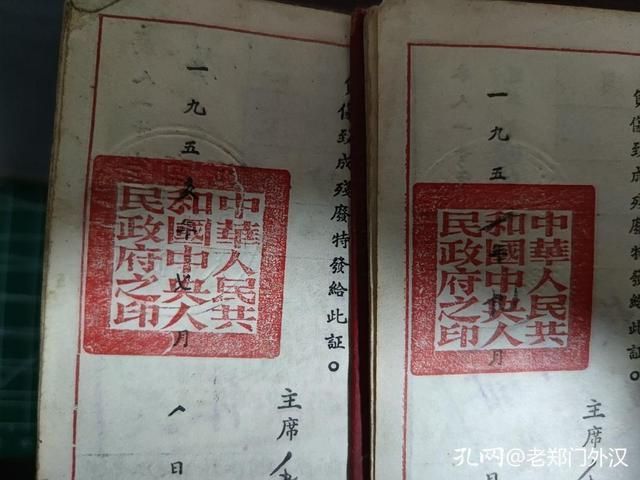 傷致成殘廢特發給此証。
主席
中華人民共
和國中央人
民政府之印
一九五五年七月八日
傷致成殘廢特發給此証。
主席
中華人民共
和國中央人
民政府之印
一九五年月
孔网@老郑门外汉